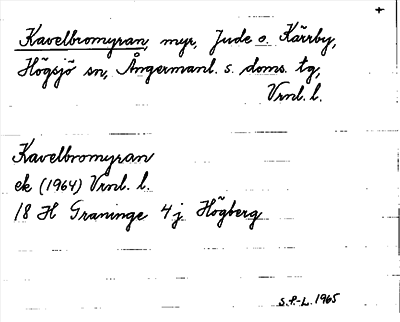 +
Kavelbromyran, myr, Jude o. Kärrby,
Högsjö sn, Ångermanl. s. doms. tg,
Vrnl. l.
Kavelbromyran
ek (1964) Vrnl. l.
18 H Graninge 4 j Högberg
S.P-L. 1965